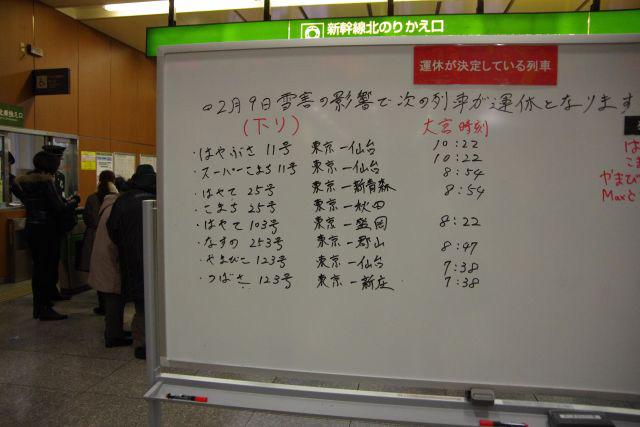 新幹線北のりかえ口
運休が決定している列車
○2月9日雪害の影響で次の列車が運休となります
(下り) 大宮時刻
・はやぶさ 11号 東京-仙台 10:22
・スーパーこまち 11号 東京-仙台 10:22
・はやて 25号 東京-新青森 8:54
・こまち 25号 東京-秋田 8:54
・はやて 103号 東京-盛岡 8:22
・なすの 253号 東京-郡山 8:47
・やまびこ 123号 東京-仙台 7:38
・つばさ 123号 東京-新庄 7:38
は
こま
やまび
Maxと